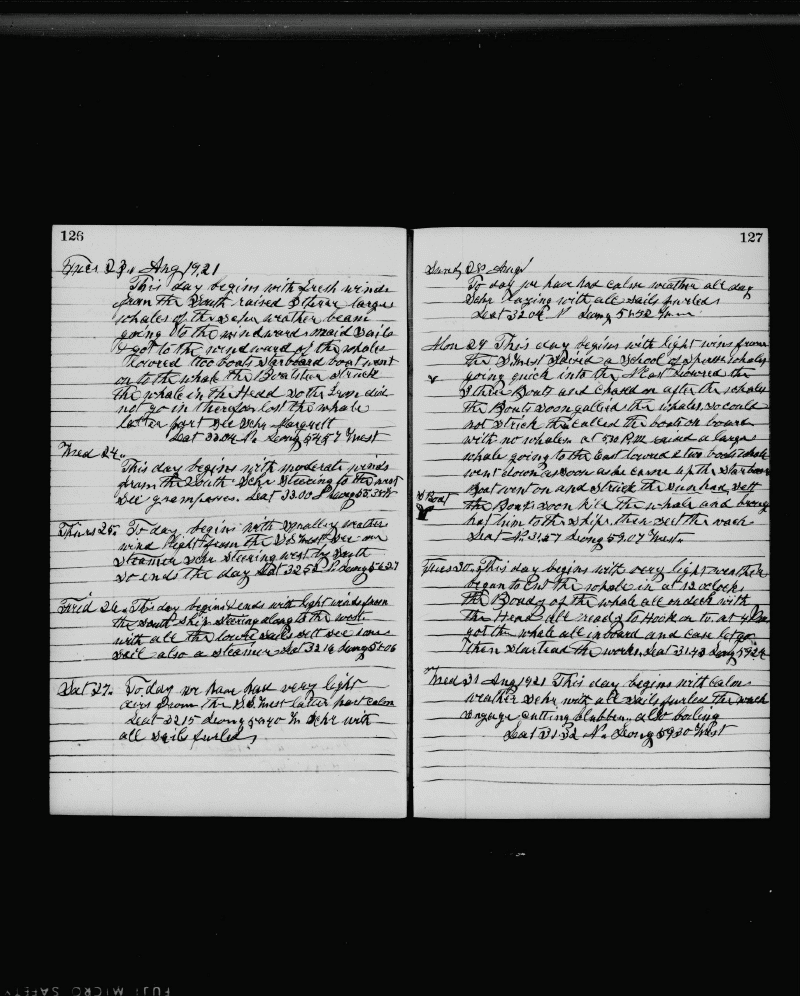 126
Tues 23. Aug 1921
This day begins with fresh winds
from the South raised large
whales off the Schr weather beam
going to the windward maid Sails
& got to the windward of the whales
lowered two boats Starboard boat went
on to the whale the Boatstear Struck
the whale in the Head so the Iron did
not go in therefor lost the whale
latter part See Schr Margrett
Lat 33.04 N. Long 54.57 West
Wed 24.
This day begins with moderate winds
from the South Schr Steering to the west
See grampuses. Lat 33.00 Long
Thurs 25. To day begins with Squalley weather
wind light from the S.S.West See one
Steamer Schr Steering west by South
So ends the day Lat 32.52 Long
Frid 26. This day begins & ends with light winds from
the South Ship Steering along to the west
with all the lower Sails Sett See some
Sail also a Steamer Lat 32.16 Long
Sat 27. To day we have had very light
airs from the West latter part calm
Lat 32.15 Long W Schr with
all Sails furled
127
Sund 28 Aug
To day we have had calm weather all day
Schr laying with all Sails furled
Lat 32.04 N Long
Mon 29 This day begins with light wins from
the S.West Raised a School of Sperm whales
going quick into the East lowered the
three Boats and chased on after the whales
the Boats Soon gallied the whales. So could
not Strick the called the boats on board
with no whales at P.M. raised a large
whale going to the East lowered two boats whale
went down as Soon as he came up the Starboard
Boat went on and Struck the Sun had Sett
S Boat
the Boats Soon kild the whale and broug
hat him to the Ship. then Sett the wach
Lat N. 31.57 Long 59.07 West.
Tues 30. This day begins with very light weather
began to Cut the whale in at 12 oclock
the Boady of the whale all on deck with
the Head all ready to Hook on to at 4 Pm
got the whale all inboard and case let go.
then Started the works. Lat 31.43 Long 59.24
Wed 31 Aug 1921 This day begins with Calm
weather Schr with all Sails furled the wach
engage cutting blubber. also boiling
Lat 31.32 N. Long 59.30 West
FUJI MICRO SAFETY